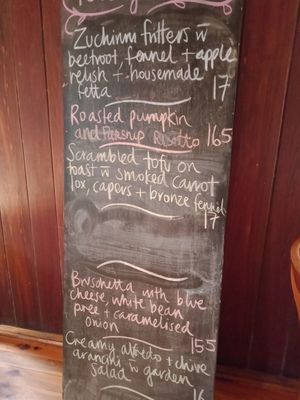 Zuchinni fritters w
beetroot, fennel + apple
relish + housemade
fetta 17
Roasted pumpkin
and Parsnip Risotto 165
Scrambled tofu on
toast w smoked carrot
lox, capers + bronze fennel
17
Bruschetta with blue
cheese, white bean
pree + caramelised
onion 155
Creamy alfredo + chive
arancini w garden
salad 16